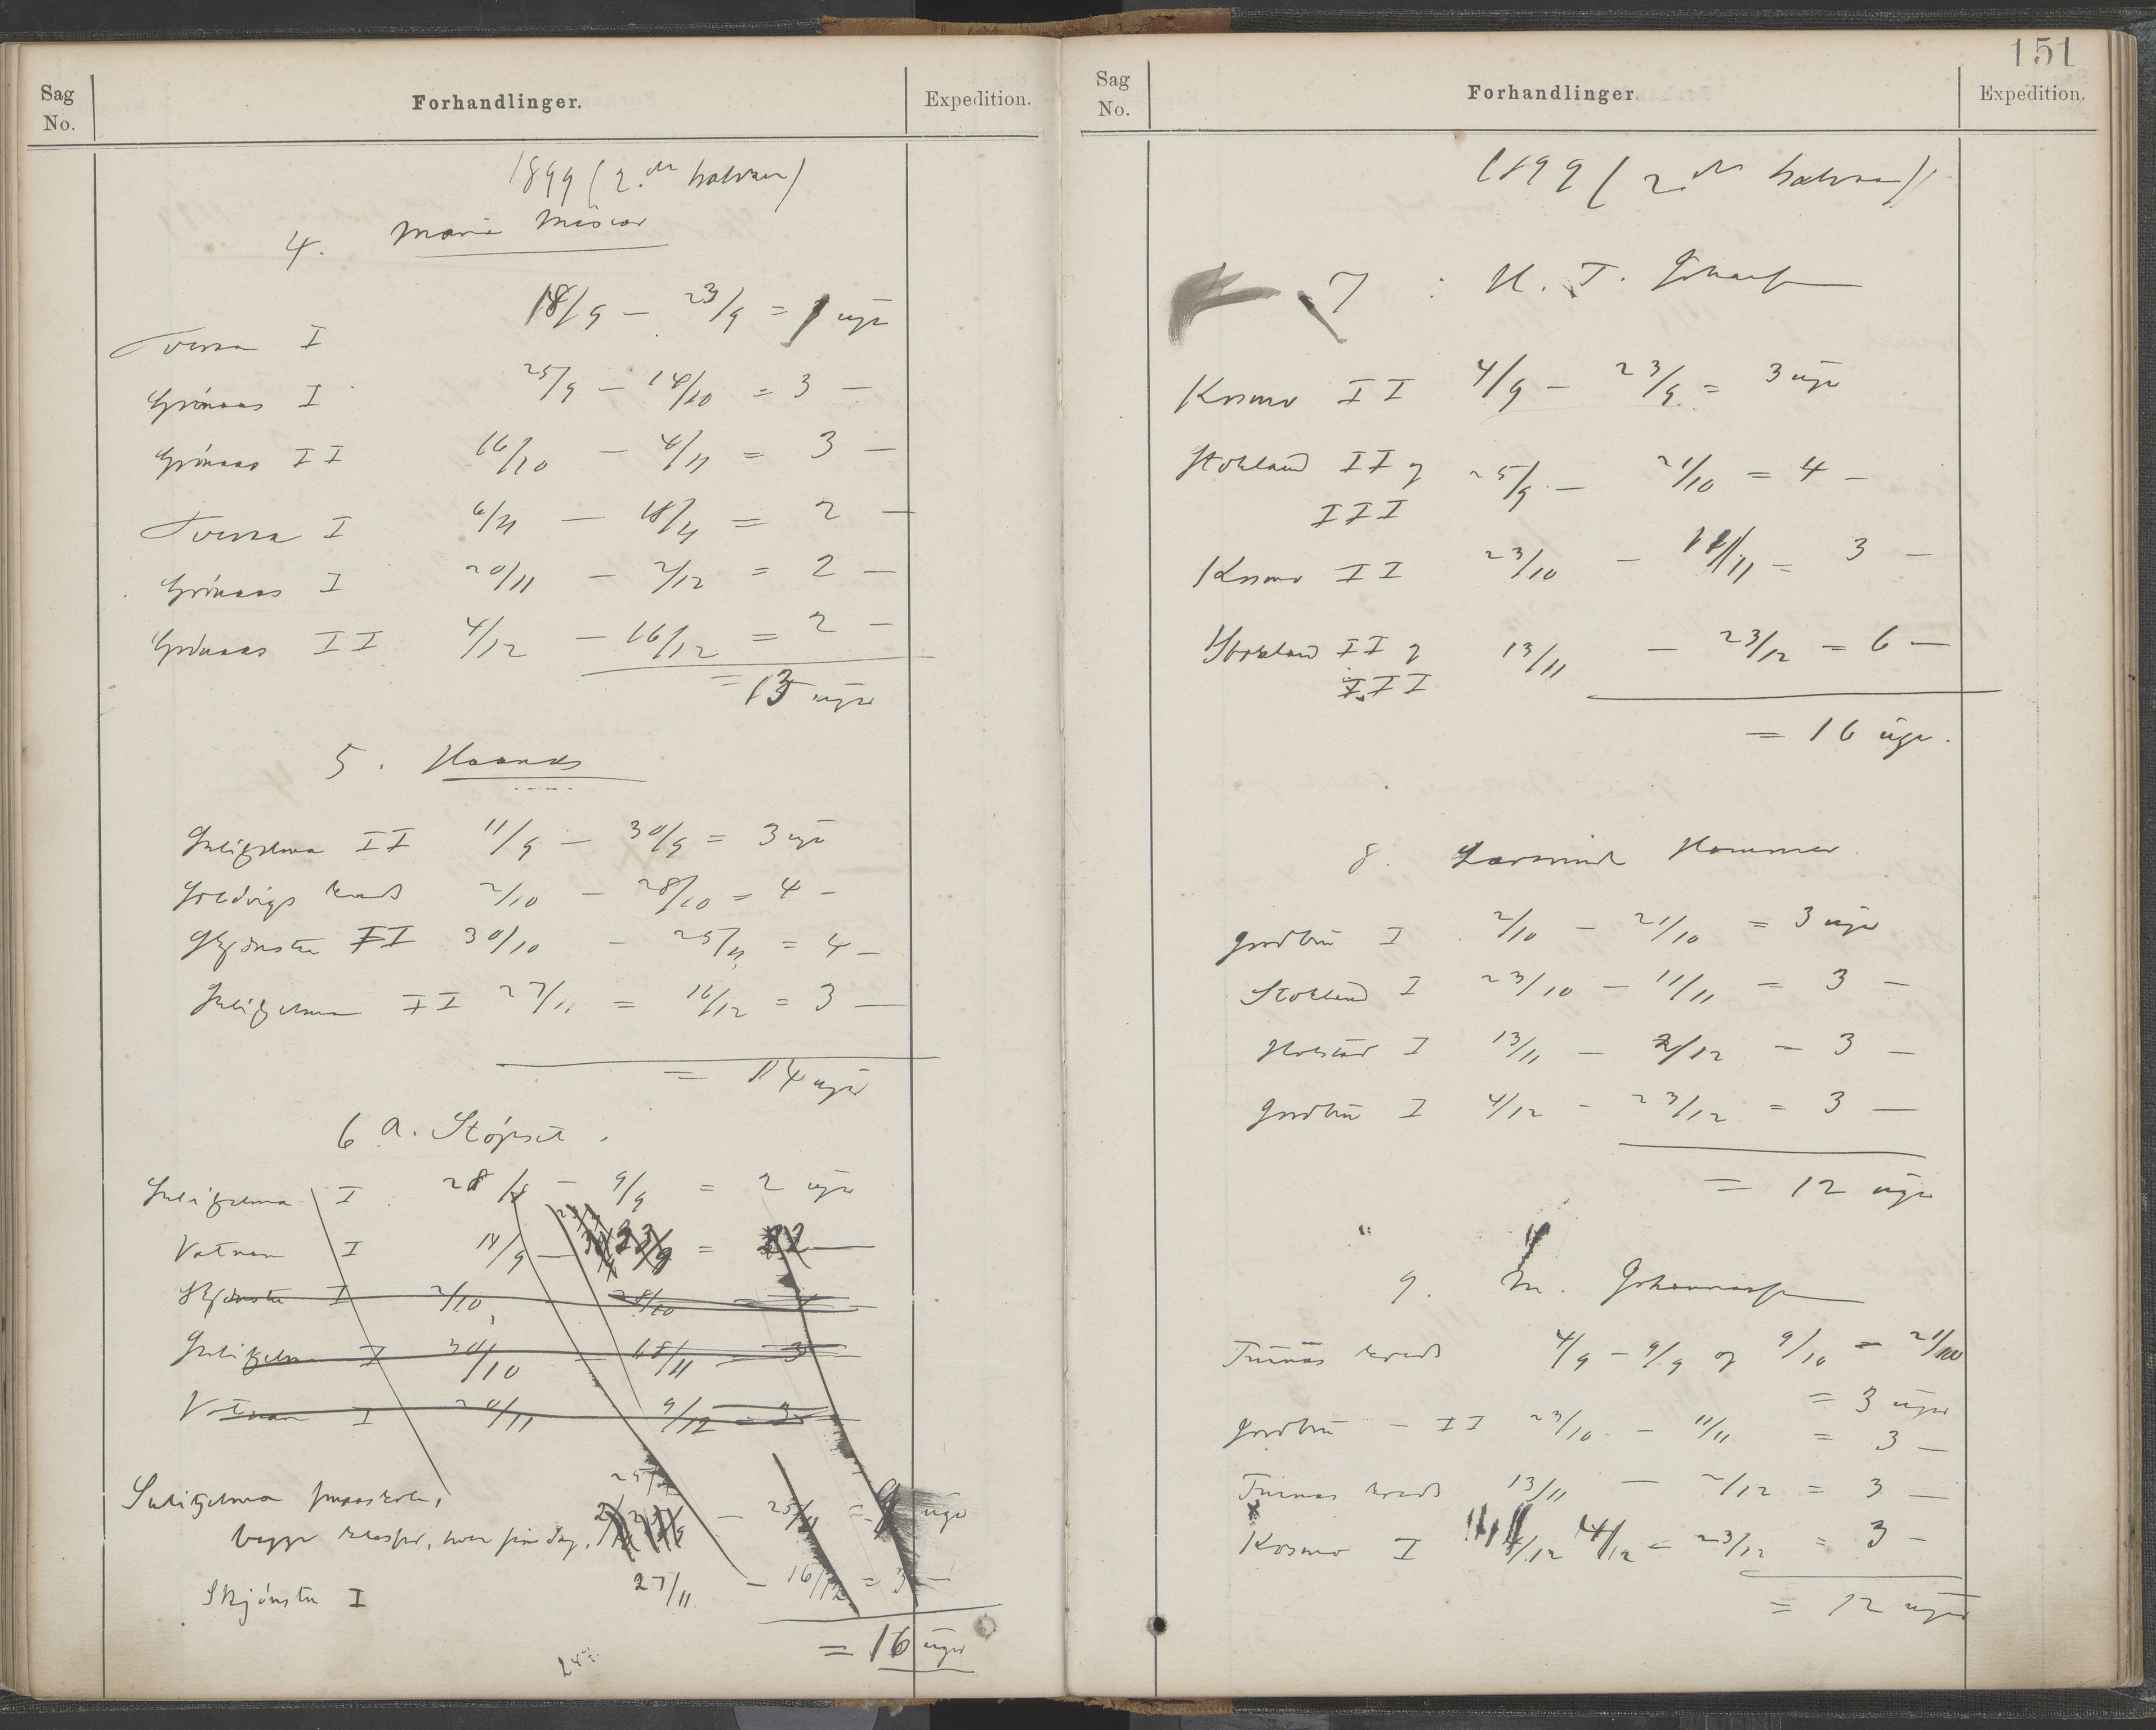 Sag
No.
Forhandlinger.
Expedition.
1899 (2.det halvaar)
4. Marie Misvær
Tveraa I 18/9 — 23/9 = 1 uge
Grönaas I 25/9 — 14/10 = 3 —
Grönaas II 16/10 — 4/11 = 3 —
Tveraa I 6/11 — 18/11 = 2 —
Grönaas I 20/11 — 2/12 = 2 —
Grönaas II 4/12 — 16/12 = 2 —
= 13 uger
5. Haanes
Sulitjelma II 11/9 — 30/9 = 3 uger
kreds 2/10 — 28/10 = 4 —
Skjönstu II 30/10 — 25/11 = 4 —
Sulitjelma II 27/11 = 16/12 = 3 —
= 14 uger
6 A. Stöpset.
Sulitjelma I 28/8 — 9/9 = 2 uger
Vatnan I 11/9 — 23/9 = 2 —
Skjönstu I 2/10 28/10
Sulitjelma I 30/10 — 18/11 — 3
Vatnan I 20/11 9/12 — 3
Sulitjelma smaaskole,
begge klasser, hver sin dag, — 25/11 = 9 uger
Skjönstu I 27/11 — 16/12 = 3 —
= 16 uger
151
Sag
No.
Forhandlinger.
Expedition.
1899 (2det halvaar)
7 : H. T.
Kosmo II 4/9 — 23/9 = 3 uger
Stokland II og 25/9 — 21/10 = 4 —
III
Kosmo II 23/10 — 11/11 = 3 —
Stokland II og 13/11 — 23/12 = 6 —
III
= 16 uger.
8. Lærerinde Hammer
Godtun I 2/10 — 21/10 = 3 uger
Stokland I 23/10 — 11/11 = 3 —
Holstad I 13/11 — 2/12 = 3 —
Godtun I 4/12 - 23/12 = 3 —
= 12 uger
9. M. Johannessen
Tuenæs kreds 4/9 — 9/9 og 9/10 — 21/10
= 3 uger
Godtun — II 23/10 — 11/11 = 3 —
Tuenæs kreds 13/11 — 2/12 = 3 —
Kosmo I 4/12 = 23/12 = 3 —
= 12 uger